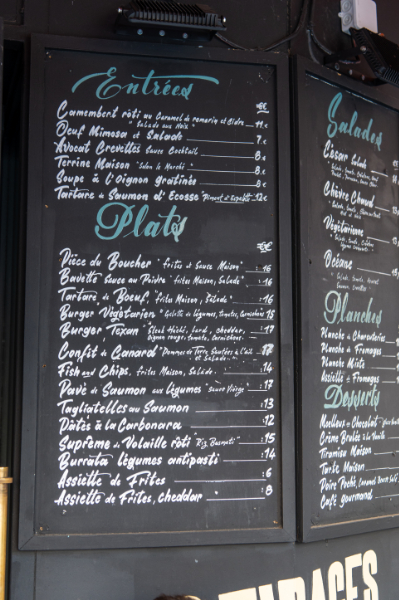 Entrées
€
Camembert rôti au Caramel de romarin et Cidre 11€
"Salade aux Noix"
Oeuf Mimosa et Salade 7€
Avocat Crevettes Sauce Cocktail 8€
Terrine Maison "Selon le Marché" 8€
Soupe à l'Oignon gratinée 8€
Tartare de Saumon d'Ecosse 12€
Plats
€
Pièce du Boucher "Frites et Sauce Maison" :16
Bavette Sauce au Poivre "Frites Maison, Salade" :16
Tartare de Boeuf, Frites Maison, Salade :16
Burger Végétarien "Galette de légumes, tomates, Cornichons 15
Burger Texan "Steak Haché, Lard, cheddar, 17
oignon rouge, tomate, Cornichons"
Confit de Canard "Pommes de Terre Sautées à l'ail 17
et Salade"
Fish and Chips, Frites Maison, Salade :14
Pavé de Saumon aux légumes "Sauce Vierge" :17
Tagliatelles au Saumon :13
Pâtes à la Carbonara :12
Suprême de Volaille rôti Riz Basmati :15
Burrata légumes antipasti :14
Assiette de Frites :6
Assiette de Frites, cheddar :8
Salades
César Salade
Chèvre Chaud
Végétarienne
Océane
Planches
Planche de Charcuteries
Planche de Fromages
Planche Mixte
Assiette de Fromages
Desserts
Moelleux au Chocolat
Crème Brûlée à la Vanille
Tiramisu Maison
Tarte Maison
Poire Pochée, Caramel Beurre Salé
Café gourmand